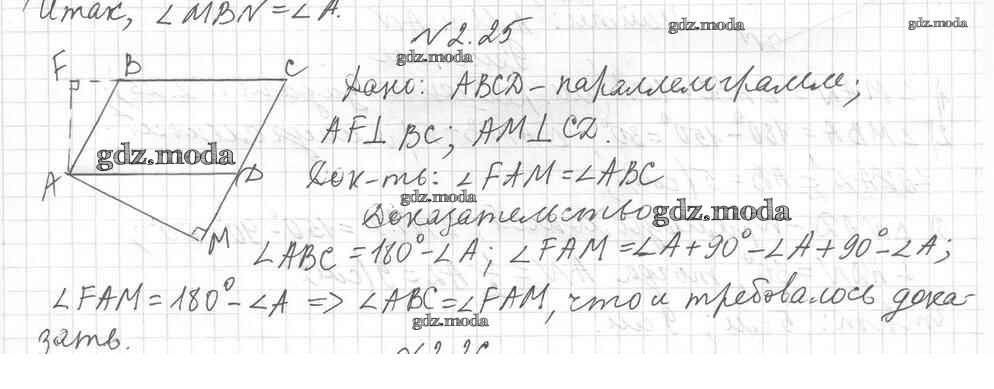 Итак, ∠MBN = ∠A.
N 2.25
gdz.moda
gdz.moda
gdz.moda
F B C
A D
M
gdz.moda
Дано: ABCD – параллелограмм;
AF⊥BC; AM⊥CD.
Док-ть: ∠FAM = ∠ABC
gdz.moda
Доказательство
gdz.moda
∠ABC = 180° - ∠A; ∠FAM = ∠A + 90° - ∠A + 90° - ∠A;
∠FAM = 180° - ∠A => ∠ABC = ∠FAM, что и требовалось дока-
gdz.moda
зать.